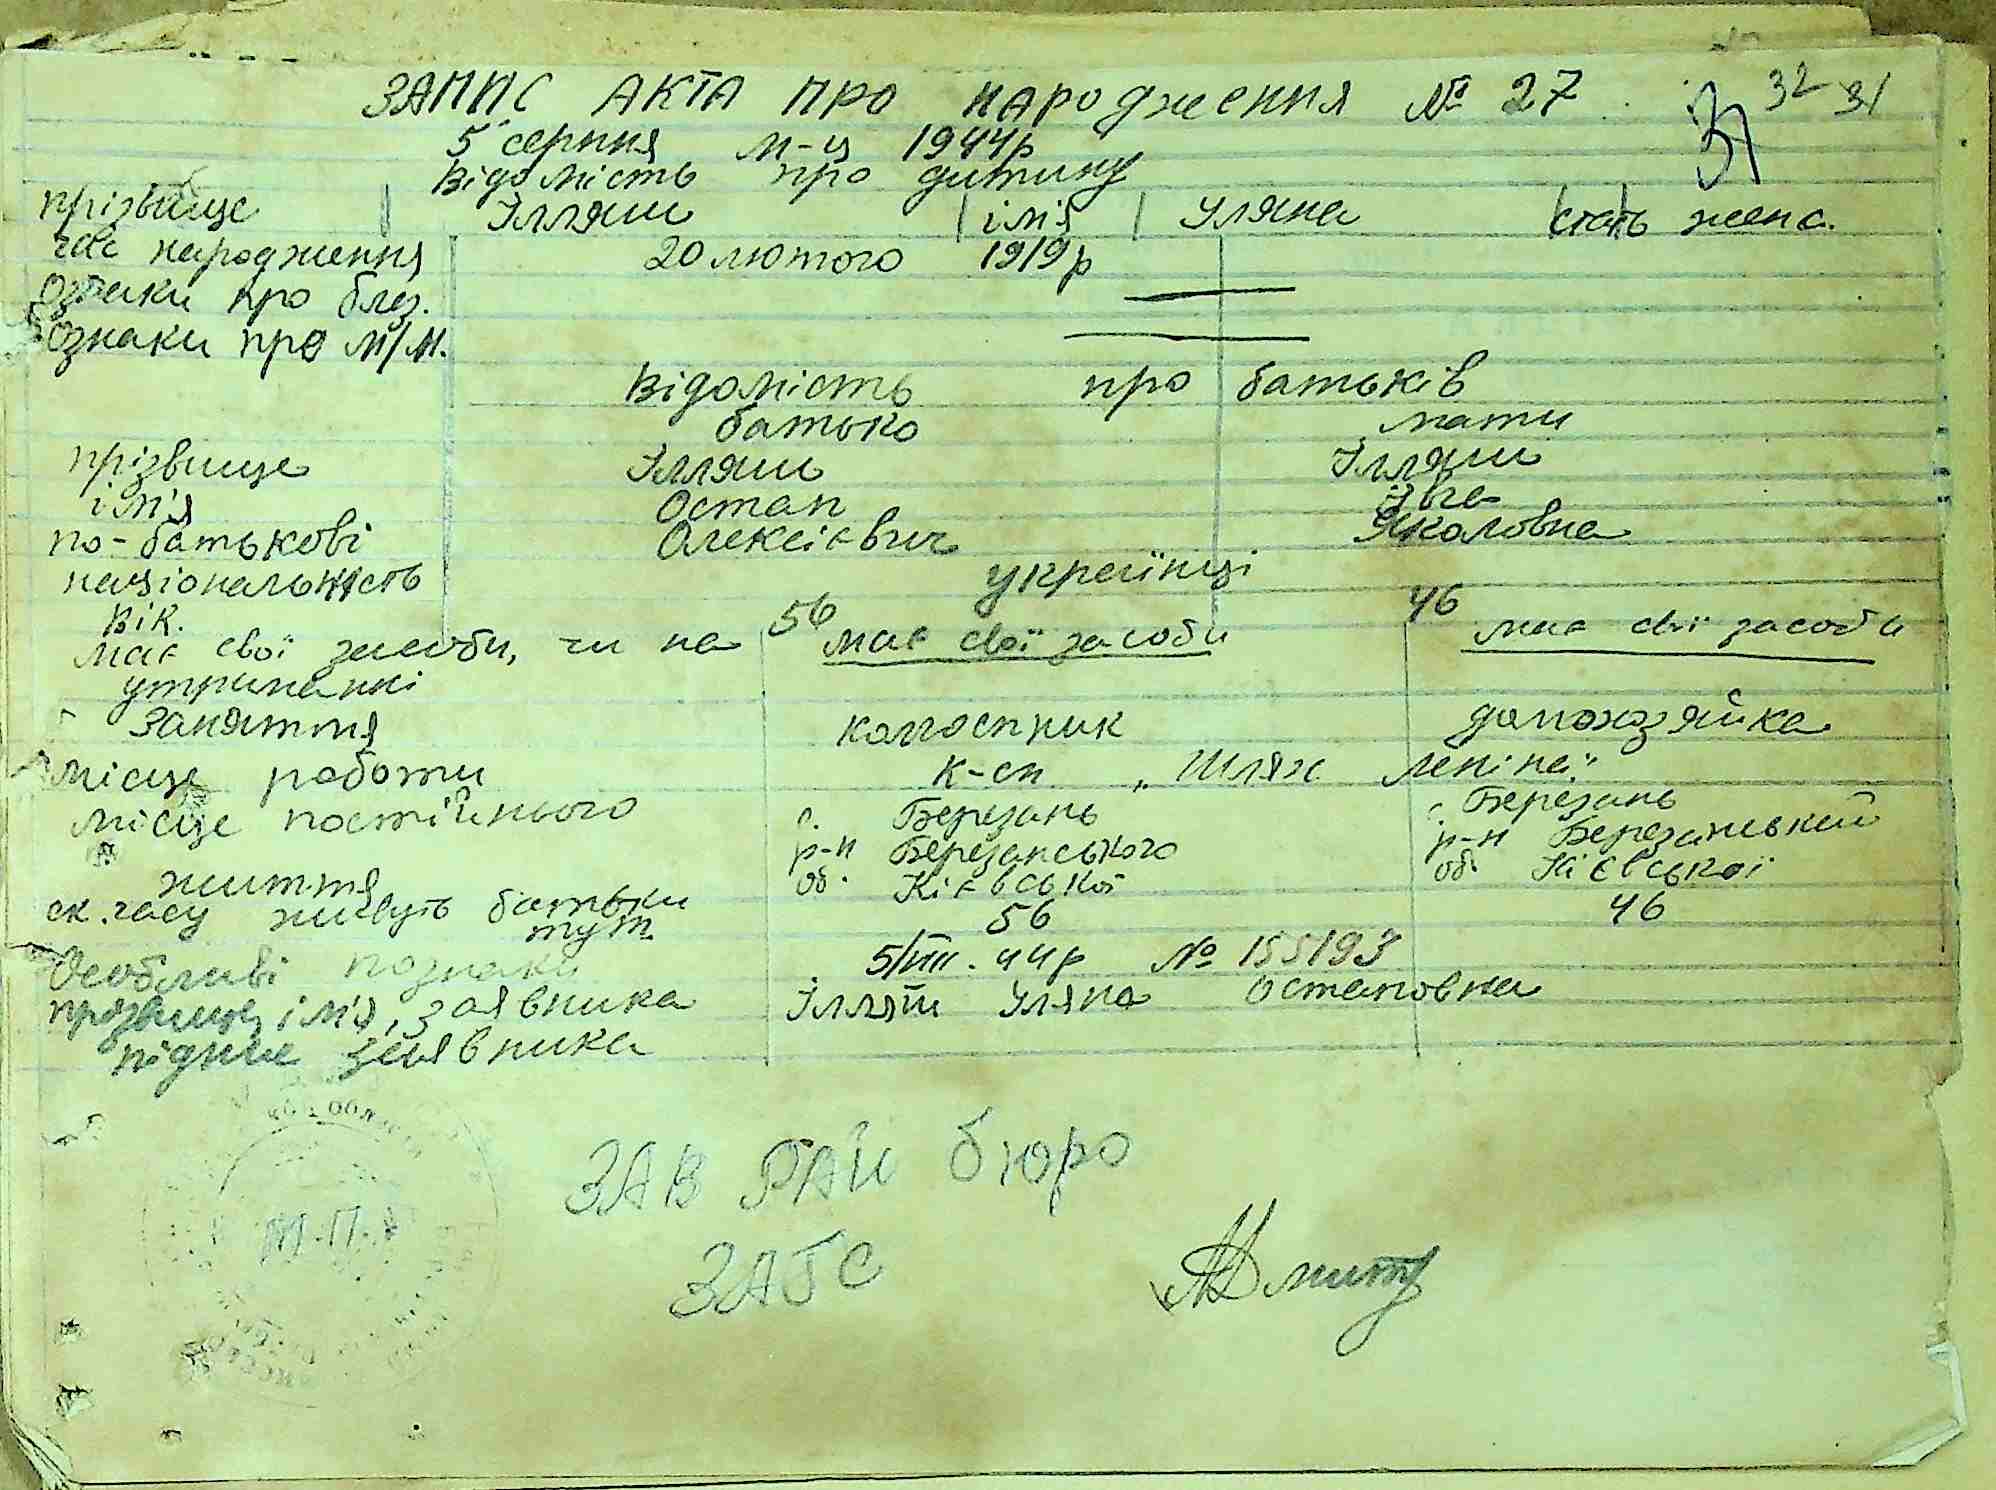 ЗАПИС АКТА ПРО НАРОДЖЕННЯ № 27 31 32 31
5 серпня м-ця 1944р
Відомість про дитину
прізвище Ілляш ім'я Уляна стать женс.
час народження 20 лютого 1919р
Ознаки про близ. —
Ознаки про м/м. —
Відомість про батьків
батько мати
прізвище Ілляш Ілляш
ім'я Остап
по-батькові Олексієвич Якаловна
національність українці
вік. 56 46
має свої засоби, чи на має свої засоби має свої засоби
утриманні
Заняття колгоспник домохозяйка
місце работи к-сп „Шлях Леніна"
місце постійнього с. Березань с. Березань
р-н Березанського р-н Березанський
життя об. Кієвської об. Кієвської
ск. часу живуть батьки тут. 56 46
Особливі познаки 5/VIII. 44р № 155193
прізвище, ім'я, заявника Ілляш Уляна Остаповна
підпис заявника
М.П.
ЗАВ РАЙ бюро
ЗАГС